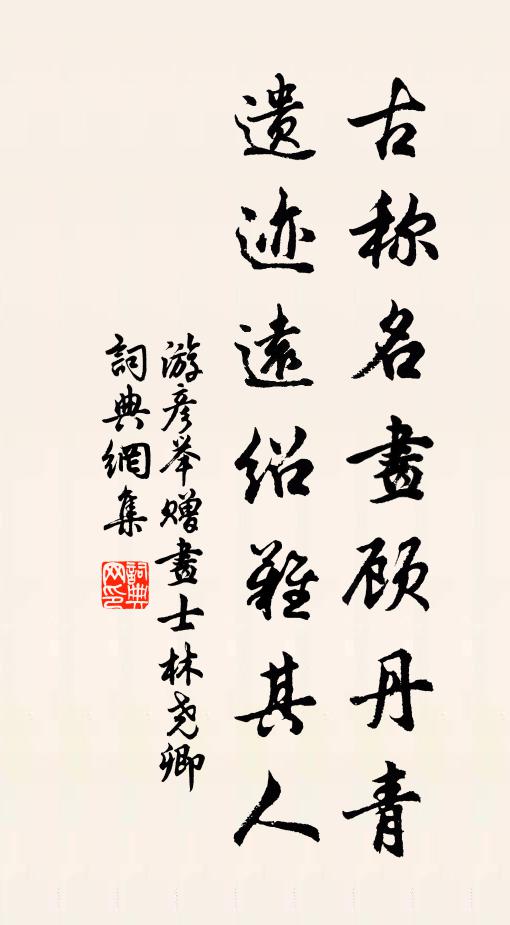 古称名畫顾丹青
遗迹遠绍難其人
游彦举赠畫士林尧卿
詞典網集
詞典网印